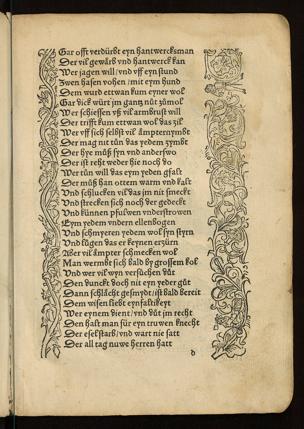 Gar offt verdürbt eyn hantwercksman
Der vil gewärb vnd hantwerck kan
Wer jagen will / vnd vff eyn stund
Zwen hasen vohen / mit eym hund
Dem wurt ettwan kum eyner wol
Gar dick würt jm gantz nüt zůmol
Wer schiessen vß vil armbrust will
Der trifft kum ettwan wol das zil
Wer vff sich selbst vil ämpter nymbt
Der mag nit tůn das yedem zymbt
Der hye můß syn vnd anderswo
Der ist reht weder hie noch do
Wer tůn will das eym yeden gfalt
Der můß han ottem warm vnd kalt
Vnd schlucken vil das jm nit smeckt
Vnd strecken sich noch der gedeckt
Vnd künnen pfulwen vnderstrowen
Eym yedem vndern ellenbogen
Vnd schmyeren yedem wol syn styrn
Vnd lůgen das er keynen erzürn
Aber vil ämpter schmecken wol
Man wermbt sich bald by grossem kol
Vnd wer vil wyn versůchen důt
Den dunckt doch nit eyn yeder gůt
Dann schlächt gesmydt / ist bald bereit
Dem wisen liebt eynfaltikeyt
Wer eynem dient / vnd důt jm recht
Den halt man für eyn truwen knecht
Der esel starb / vnd wart nie satt
Der all tag nuwe herren hatt
d